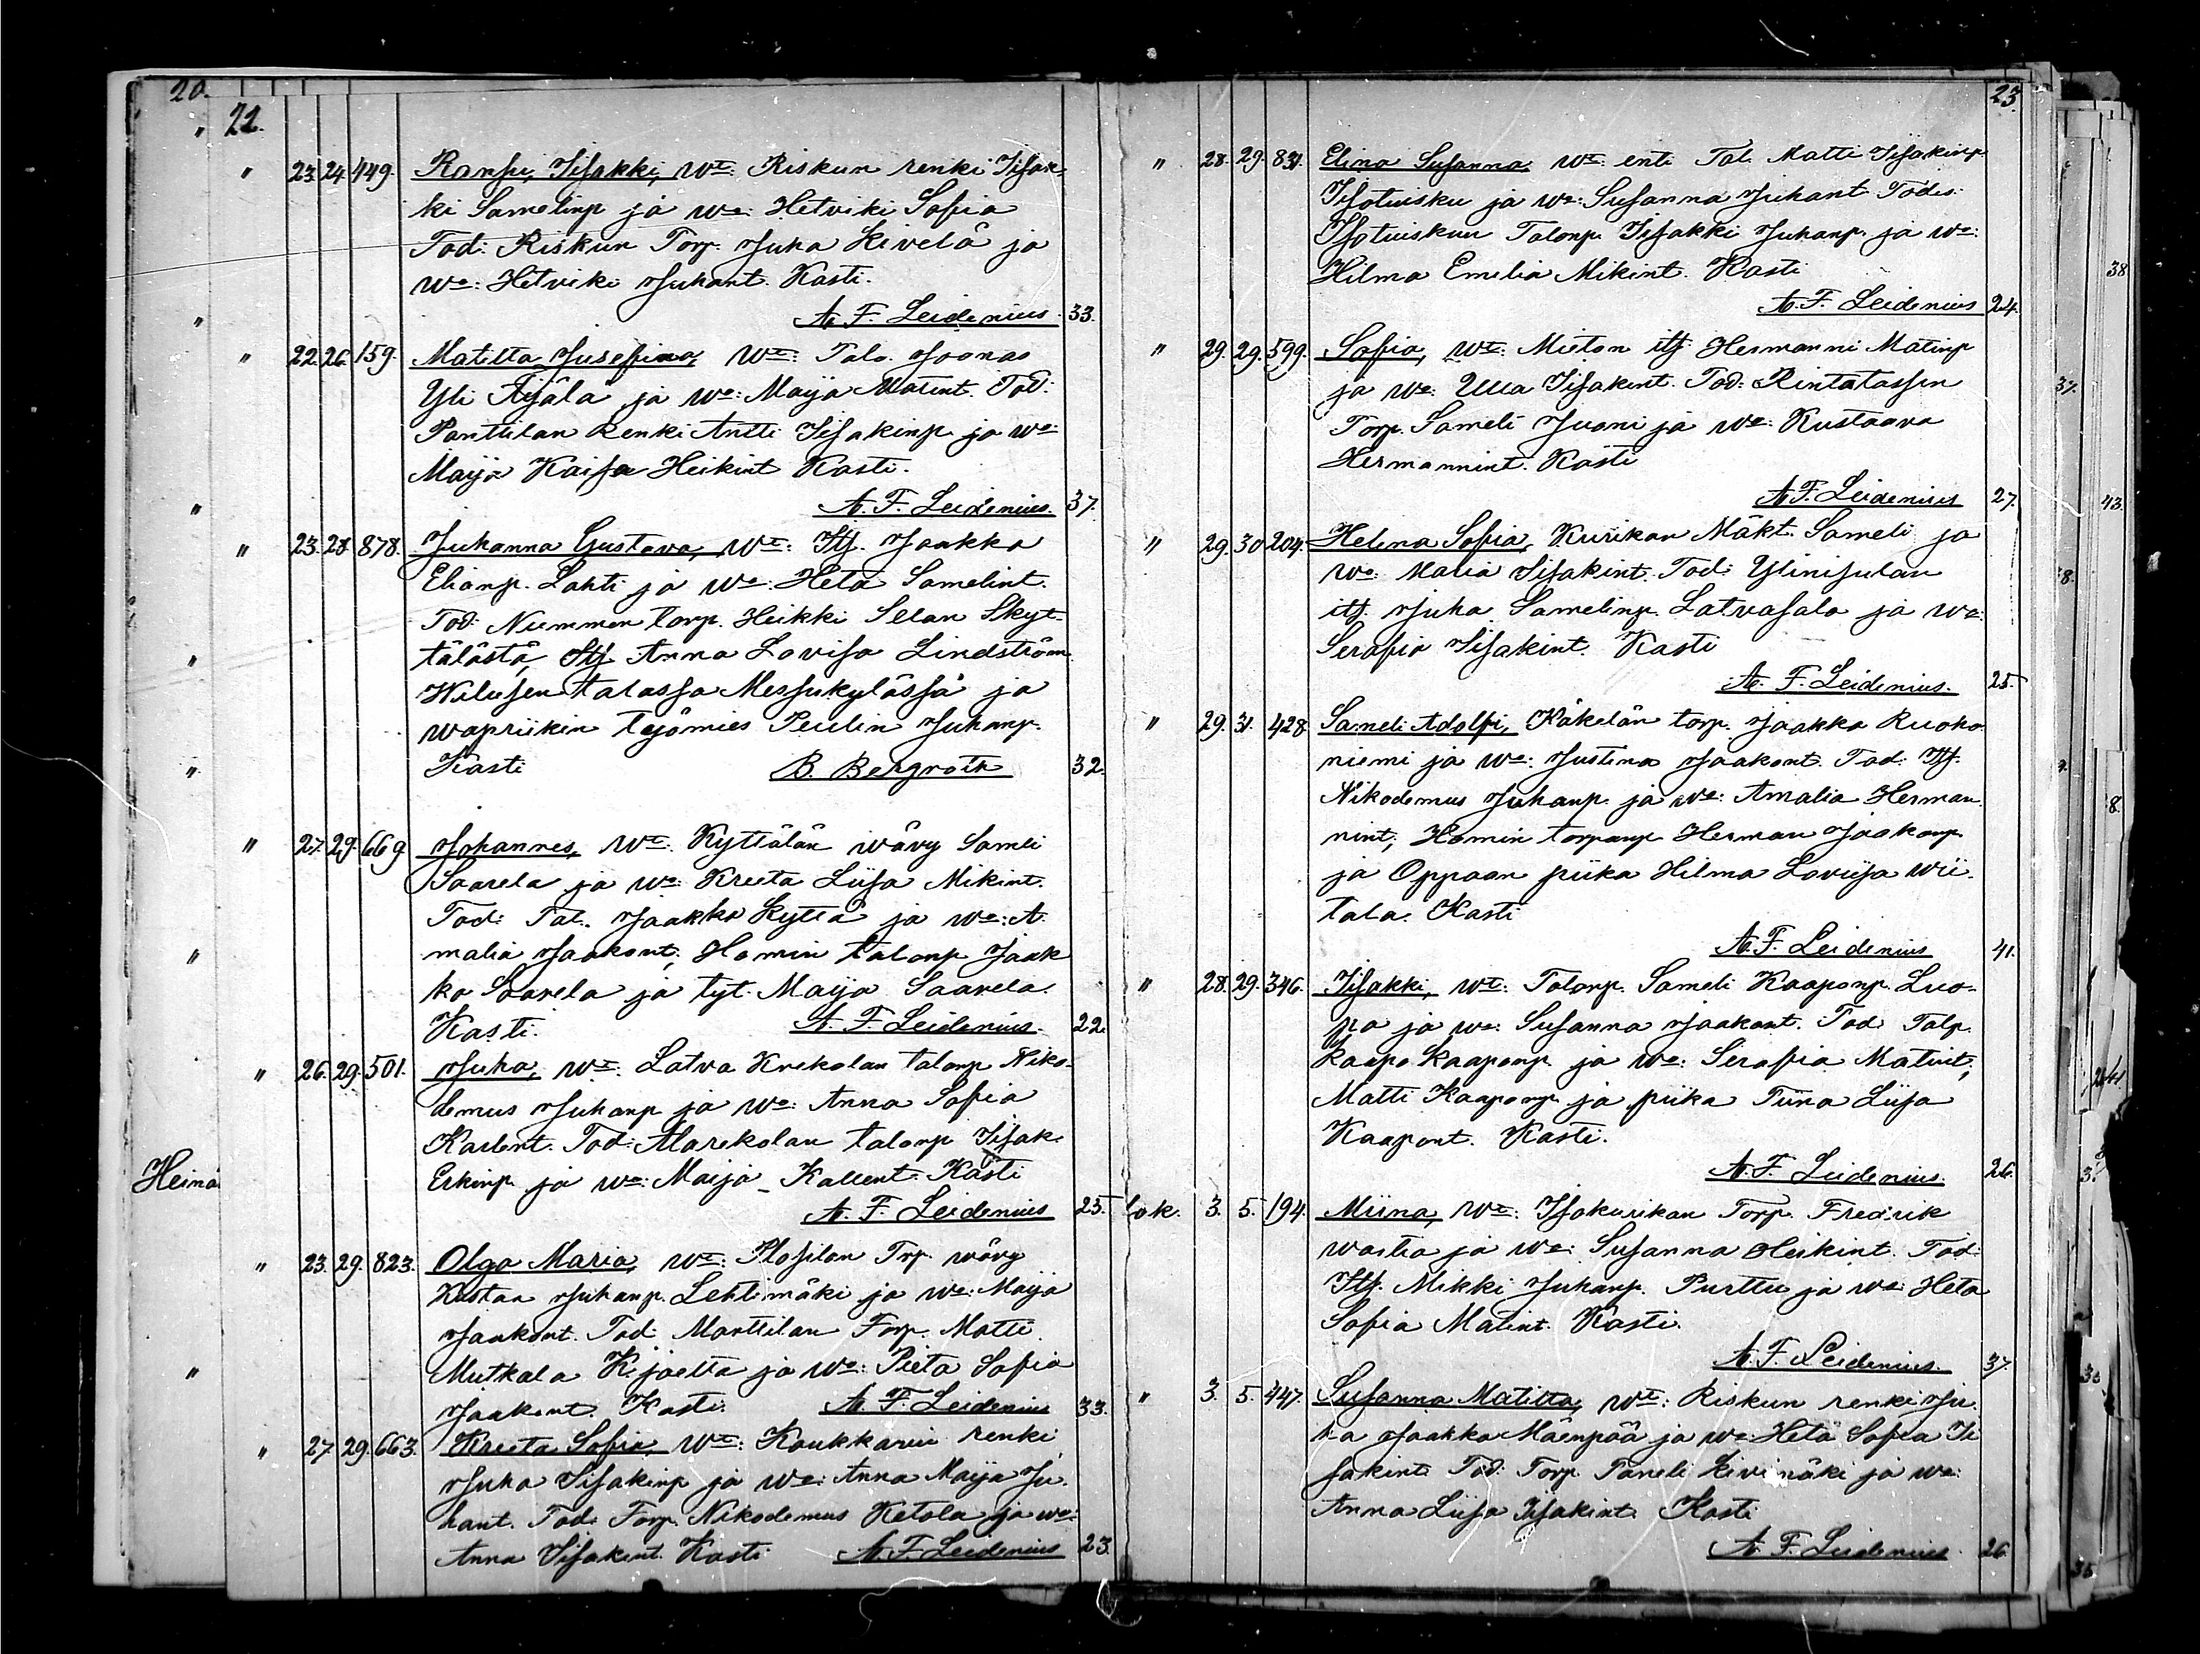 20.
22.
" 23. 24. 449. Ransu, Iisakki, Wt: Riskun renki Iisak-
ki Samelinp ja Wa: Hetviki Sofia
Tod: Riskun Torp. Juha Kivelä ja
Wa: Hetviki Juhant. Kasti.
A. F. Leidenius. 33.
" 22. 26. 159. Matilta Jusefina, Wt: Talo. Joonas
Yli Äijälä ja Wa: Maija Matint. Tod:
Panttilan Renki Antti Iisakinp. ja Wa:
Maija Kaisa Heikint Kasti.
A. F. Leidenius. 37.
" 23. 28. 878. Juhanna Gustava, Wt: Itj. Jaakko
Elianp. Lahti ja Wa: Heta Samelint.
Tod: Nummen torp. Heikki Selan Skyt-
tälästä, Itj Anna Lovisa Lindström
Wilusen talassa Messukylässä ja
wapriikin työmies Peulin Juhanp.
Kasti B. Bergroth 32.
" 27. 29. 669 Johannes, Wt: Kyttälän wävy Sameli
Saarela ja Wa: Kreeta Liisa Mikint.
Tod: Tal. Jaakko Kyttä ja Wa: A-
malia Jaakont; Homin talonp Jaak
ko Saarela ja tyt. Maija Saarela.
Kasti. A. F. Leidenius. 22.
" 26. 29. 501. Juha, Wt: Latva Krekolan talonp Niko-
demus Juhanp ja Wa: Anna Sofia
Karlent. Tod: Alarekolan talonp Iisak
Erkinp. ja Wa: Maija Kallent. Kasti
Heinä
A. F. Leidenius 25.
" 23. 29. 823. Olga Maria, Wt: Plosilan Trp. wävy
Kustaa Juhanp. Lehtimäki ja Wa: Maija
Jaakont. Tod: Marttilan Torp. Matti
Mutkala K. joelta ja Wa: Pieta Sofia
Jaakont. Kasti. A. F. Leidenius 33.
" 27. 29. 663. Kreeta Sofia Wt: Koukkarin renki
Juha Iisakinp ja Wa: Anna Maija Ju-
hant. Tod: Torp. Nikodemus Ketola ja wa:
Anna Iisakint. Kasti A. F. Leidenius 23.
23.
" 28. 29. 831. Elina Susanna, Wt: enti Tal. Matti Iisakinp
Isotuisku ja Wa: Susanna Juhant. Tod:
Isotuiskun Talonp. Iisakki Juhanp. ja Wa:
Hilma Emelia Mikint. Kasti
A. F. Leidenius 24.
" 29. 29. 599. Sofia, Wt: Mieton itj. Hermanni Matinp
ja Wa: Ulla Iisakint. Tod: Rintatassen
Torp. Sameli Juoni ja Wa: Kustaava
Hermannint. Kasti
A. F. Leidenius 27.
" 29. 30. 204. Helena Sofia, Kurikan Mäkt. Sameli ja
Wa: Malia Iisakint. Tod: Ylinisulan
itj. Juha Samelinp. Latvasalo ja Wa:
Serafia Iisakint. Kasti
A. F. Leidenius. 25.
" 29. 31. 428. Sameli Adolfi, Käkelän torp. Jaakko Ruoko-
niemi ja Wa: Justina Jaakont. Tod: Itj.
Nikodemus Juhanp. ja Wa: Amalia Herman-
nint; Homin torpanp Herman Jaakonp
ja Oppaan piika Hilma Loviisa Wii-
tala. Kasti
A. F. Leidenius 41.
" 28. 29. 346. Iisakki, Wt: Talonp. Sameli Kaaponp. Luo-
pa ja Wa: Susanna Jaakont. Tod: Talp.
Kaapo Kaaponp. ja Wa: Serafia Matint;
Matti Kaaponp. ja piika Tiina Liisa
Kaapont. Kasti.
A. F. Leidenius. 26.
Lok. 3. 5. 194. Miina, Wt: Isokurikan Torp. Fredrik
wastia ja Wa: Susanna Heikint. Tod:
Itj. Mikki Juhanp. Purttu ja Wa: Heta
Sofia Matint. Kasti.
A. F. Leidenius. 37.
" 3. 5. 447. Susanna Matilta, Wt: Riskun renki Ju-
ha Jaakko Mäenpää ja Wa: Heta Sofia Ii
sakint. Tod: Torp. Taneli Kivimäki ja Wa:
Anna Liisa Iisakint. Kasti
A. F. Leidenius. 26.